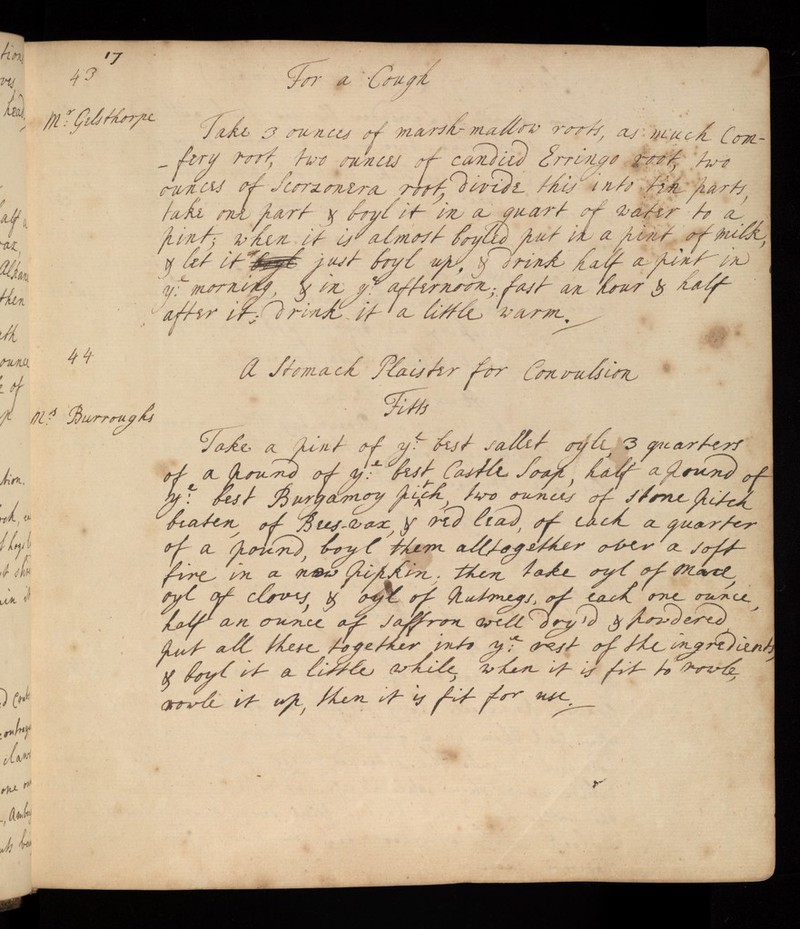 17
43
For a Cough
Mr. Gelsthorpe
Take 3 ounces of marsh-mallow roots, as much Com-
-fery root, two ounces of candied Erringo root, two
ounces of Scorzonera root, divide this into ten parts,
take one part & boyl it in a quart of water to a
pint; when it is almost boyled put in a pint of milk,
& let it just boyl up, & drink half a pint in
ye. morning, & in ye. afternoon; fast an hour & half
after it; drink it a little warm.
44
A Stomach Plaister for Convulsion
Fitts
Mrs Burroughs
Take a pint of ye. best sallet oyle, 3 quarters
of a pound of ye. best Castle Soap, half a pound of
ye. best Burgamoy pitch, two ounces of stone pitch
beaten, of Bees-wax, & red lead, of each a quarter
of a pound, boyl them alltogether over a soft
fire in a new pipkin. then take oyl of mace,
oyl of cloves, & oyl of nutmegs, of each one ounce,
half an ounce of saffron well dry'd & powdered
put all these together into ye. rest of the ingredients,
& boyl it a little while, when it is fit to rowle,
rowle it up, then it is fit for use.